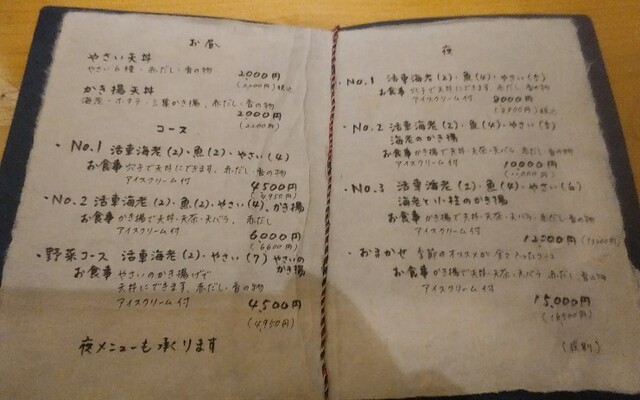 お昼
やさい天丼
やさい6種・赤だし・香の物
2,000円
(2,200円)税込
かき揚天丼
海老・ホタテ・三葉かき揚、赤だし・香の物
2000円
(2200円)
コース
・No.1 活車海老(2)・魚(2)・やさい(4)
お食事 穴子で天丼にできます、赤だし・香の物
アイスクリーム付
4500円
(4950円)
・No.2 活車海老(2)・魚(2)・やさい(4)、かき揚
お食事 かき揚で天丼・天茶・天バラ、赤だし
アイスクリーム付
6000円
(6600円)
・野菜コース 活車海老(2)・やさい(7) やさいのかき揚
お食事 やさいのかき揚げで
天丼にできます、赤だし・香の物
アイスクリーム付
4,500円
(4,950円)
夜メニューも承ります
夜
・No.1 活車海老(2)・魚(4)・やさい(5)
お食事 穴子で天丼にできます、赤だし・香の物
アイスクリーム付
8000円
(8800円)税込
・No.2 活車海老(2)・魚(4)・やさい(5)
海老のかき揚
お食事 かき揚で天丼・天茶・天バラ 赤だし・香の物
アイスクリーム付
10000円
(11,000円)
・No.3 活車海老(2)・魚(4)・やさい(6)
海老と小柱のかき揚
お食事 かき揚で天丼・天茶・天バラ、赤だし・香の物
アイスクリーム付
12,000円
・おまかせ 季節のオススメが
お食事 かき揚で天丼・天茶・天バラ 赤だし・香の物
アイスクリーム付
15,000円
(16500円)